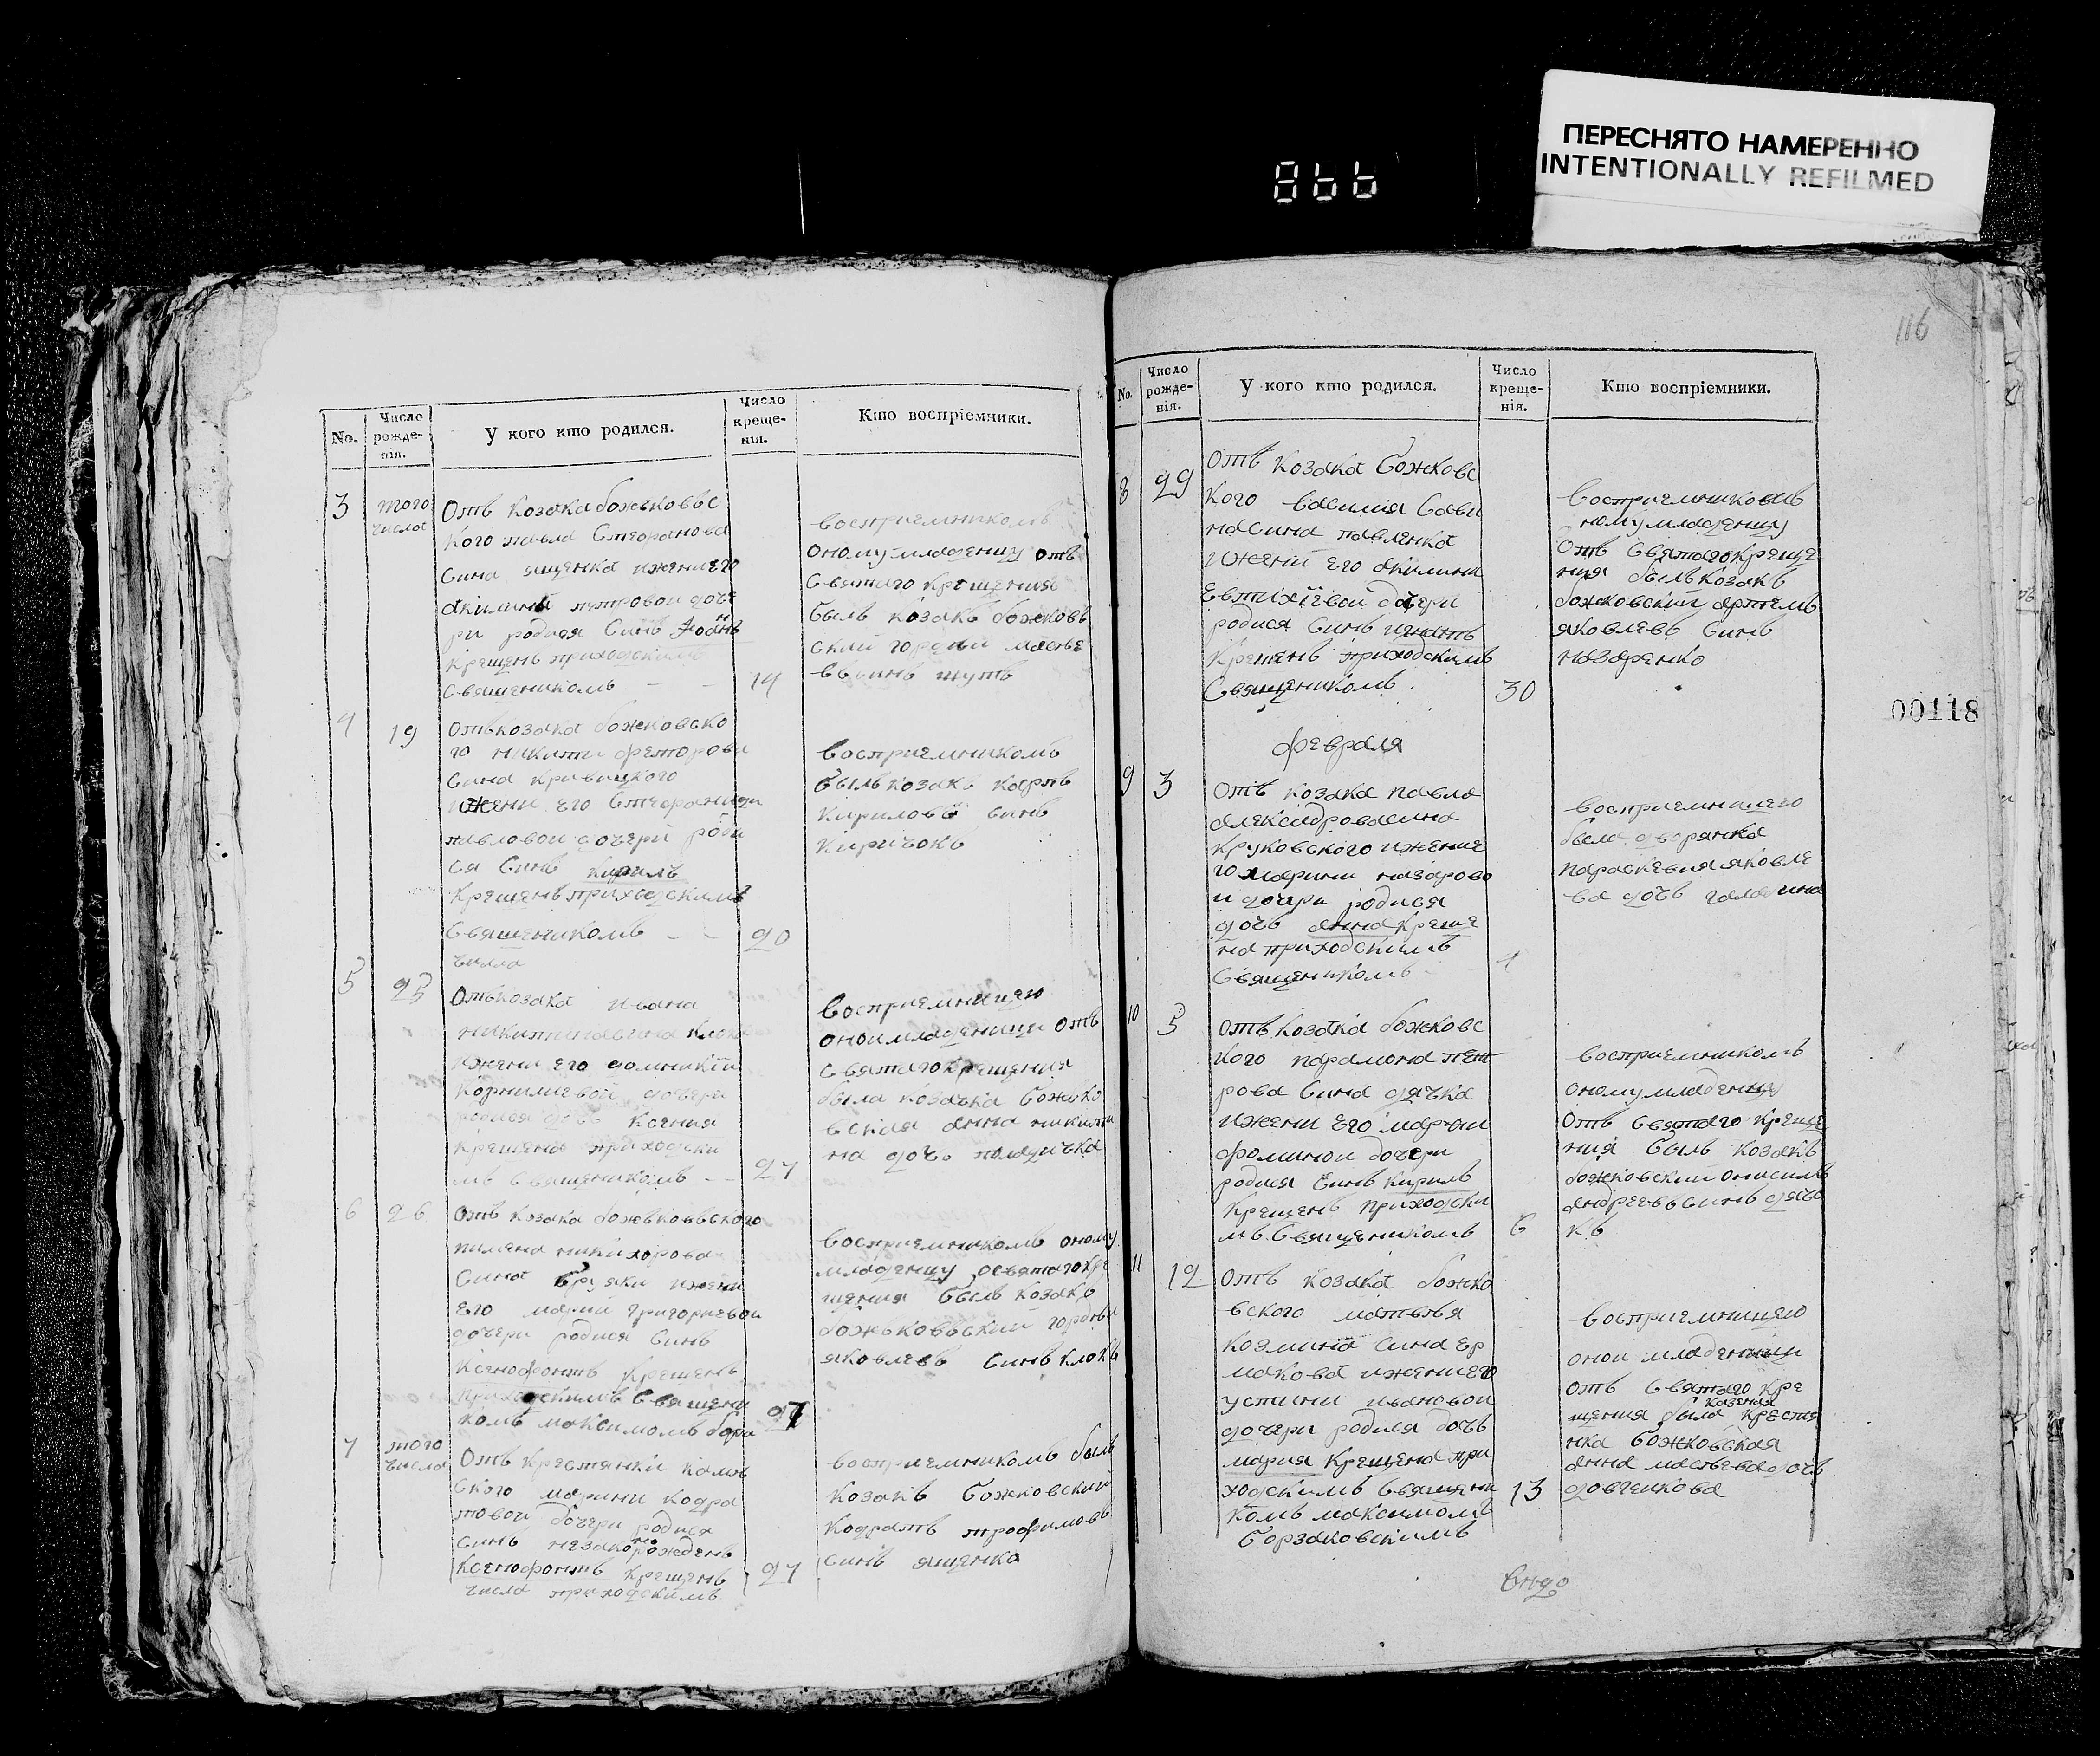 ПЕРЕСНЯТО НАМЕРЕННО
INTENTIONALLY REFILMED
866
116
00118
No.
Число рожденія.
У кого кто родился.
Число крещенія.
Кто воспріемники.
3
того числа
Отъ козака божковвс
кого павла Стефанова
Сина ященка ижениего
акилини петровои доче
ри родися Синъ Іоанъ
крещенъ приходскимъ
Священикомъ
14
восприемникомъ
оному младенцу отъ
Святаго крещения
былъ козакъ божковъ
ский гордий матве
4
19
Отъкозака божковско
го никити федорови
Сина кривицкого
ижени его Стефаниди
павловои дочери роди
ся Синъ Кирилъ
Крещенъ приходскимъ
Священикомъ
20
восприемникомъ
былъ козакъ карпъ
кириловъ синъ
Киричокъ
5
25
числа
Отъкозака ивана
никитинасина
ижени его домникии
корнилиевой дочери
родися дочъ Ксения
крещена приходски
мъ Священикомъ
27
восприемницею
оноимладеници отъ
святагокрещения
была козачка божко
вская анна никити
на дочъ
6
26
Отъ козака божковвского
пимена никихорова
Сина ижени
Его марии григориевои
дочери родися Синъ
Ксенофонтъ крещенъ
приходскимъ Священи
комъ максимомъ борза
27
восприемникомъ оному
младенцу
щения былъ козакъ
божьковвский гордъй
яковлевъ Синъ
7
того числа
Отъ Крестянки казен
ского марини кодра
товои дочери родися
синъ незаконорожденъ
Ксенофонтъ крещенъ
числа приходскимъ
27
восприемникомъ былъ
козакъ божковский
кодратъ трофимовъ
синъ ященко
No.
Число рожденія.
У кого кто родился.
Число крещенія.
Кто воспріемники.
8
29
отъ козака божковс
кого василия Сави
насина павленка
ижений его акилини
Евтихїевой дочери
родися Синъ игнатъ
крещенъ приходскимъ
Священикомъ
30
восприемникомъ
ному младенцу
отъ Святагокреще
ния былъ козакъ
божковский артемъ
яковлевъ Синъ
назаренко
февраля
9
3
отъ козака павла
александровасина
круковского ижение
го марини назарово
и дочери родися
дочъ анна креще
на приходскимъ
Священикомъ
4
восприемницею
была дворянка
параскевия яковле
ва дочъ
10
5
отъ козака божковс
кого парамона пет
рова Сина дячка
ижени Его марфи
фоминои дочери
родися Синъ кирилъ
крещенъ приходски
мъ Священикомъ
6
восприемникомъ
оному младенцу
отъ Святаго креще
ния былъ козакъ
божковский онисимъ
андреевъ синъ дячо
къ
11
12
отъ козака божко
вского матвъя
козмина сина ер
макова иженыего
устини ивановои
дочери родися дочъ
мария крещена при
ходскимъ Священи
комъ максимомъ
борзаковскимъ
13
восприемницею
онои младеници
отъ Святаго кре
щения была казения крестия
нка божковская
анна матвева дочъ
довгенкова